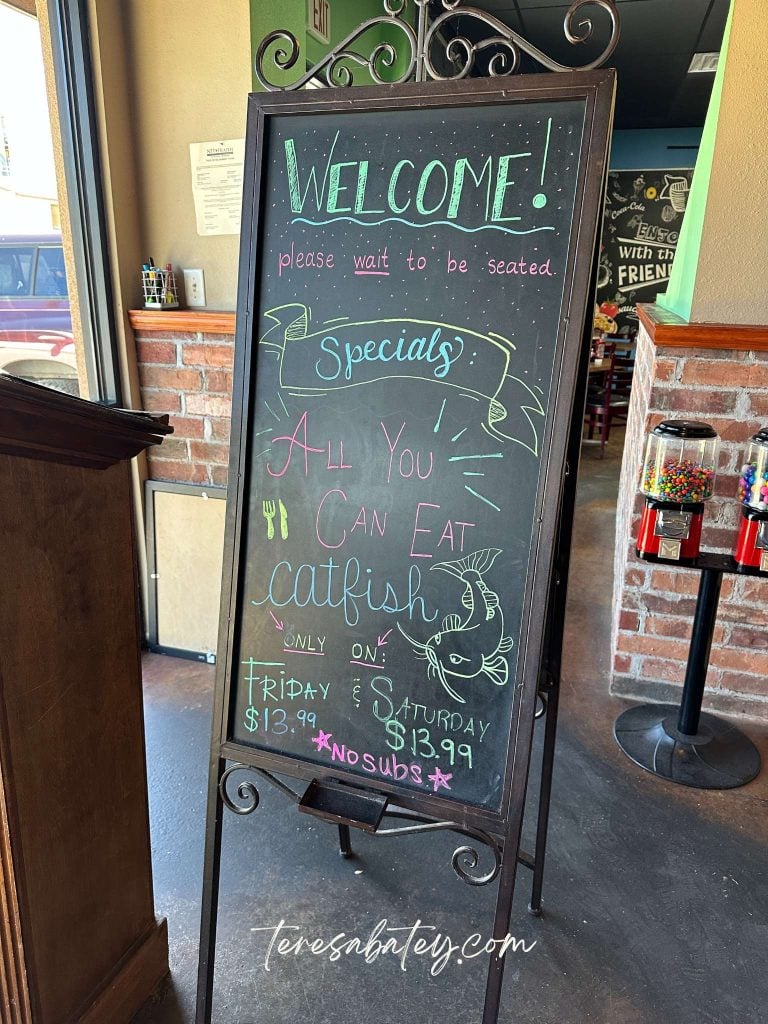 EXIT
WELCOME!
please wait to be seated.
Specials:
ALL YOU
CAN EAT
catfish
ONLY ON:
FRIDAY & SATURDAY
$13.99 $13.99
NO SUBS.
Coca-Cola
ENJO
WITH the
FRIEN
teresabatey.com